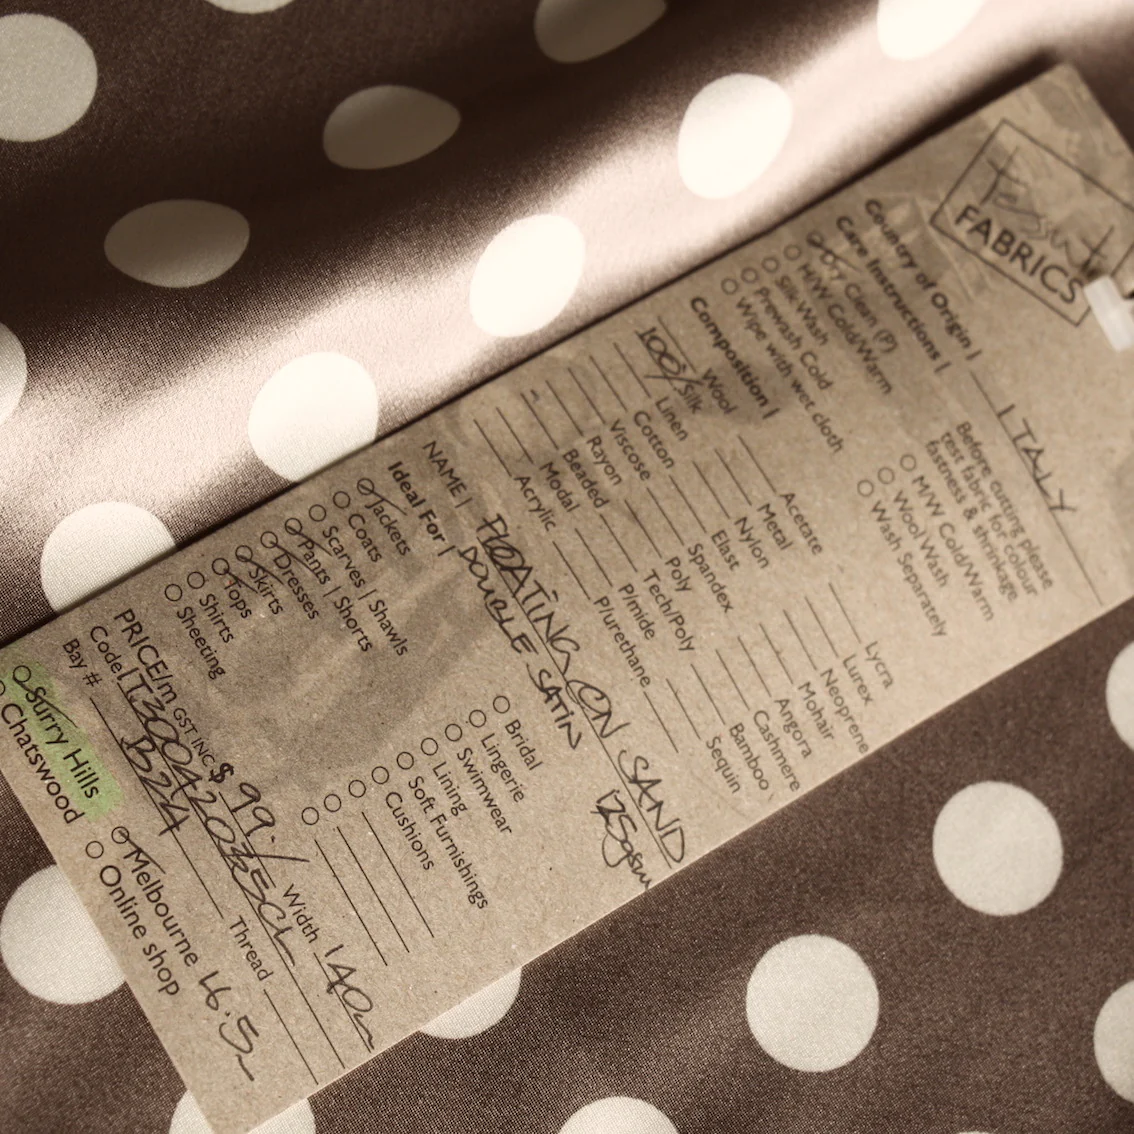 tessuti
FABRICS
Country of Origin | ITALY
Care Instructions |
Dry Clean (P)
H/W Cold/Warm
Silk-Wash
Prewash Cold
Wipe with wet cloth
Before cutting please
test fabric for colour
fastness & shrinkage
M/W Cold/Warm
Wool Wash
Wash Separately
Composition |
Wool
100% Silk
Linen
Cotton
Viscose
Rayon
Beaded
Modal
Acrylic
Acetate
Metal
Nylon
Elast
Spandex
Poly
Tech/Poly
P/mide
P/urethane
Lycra
Lurex
Neoprene
Mohair
Angora
Cashmere
Bamboo
Sequin
NAME | FLOATING ON SAND
DOUBLE SATIN 175gsm
Ideal For |
Jackets
Coats
Scarves | Shawls
Pants | Shorts
Dresses
Skirts
Tops
Shirts
Sheeting
Bridal
Lingerie
Swimwear
Lining
Soft Furnishings
Cushions
PRICE/m GST INC $99./ Width 140
Code|
Bay # B24 Thread
Surry Hills
Chatswood
Melbourne 46.5
Online shop